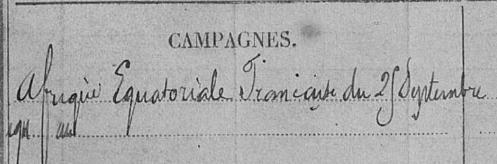 CAMPAGNES.
Afrique Equatoriale Francaise du 25 Septembre
au